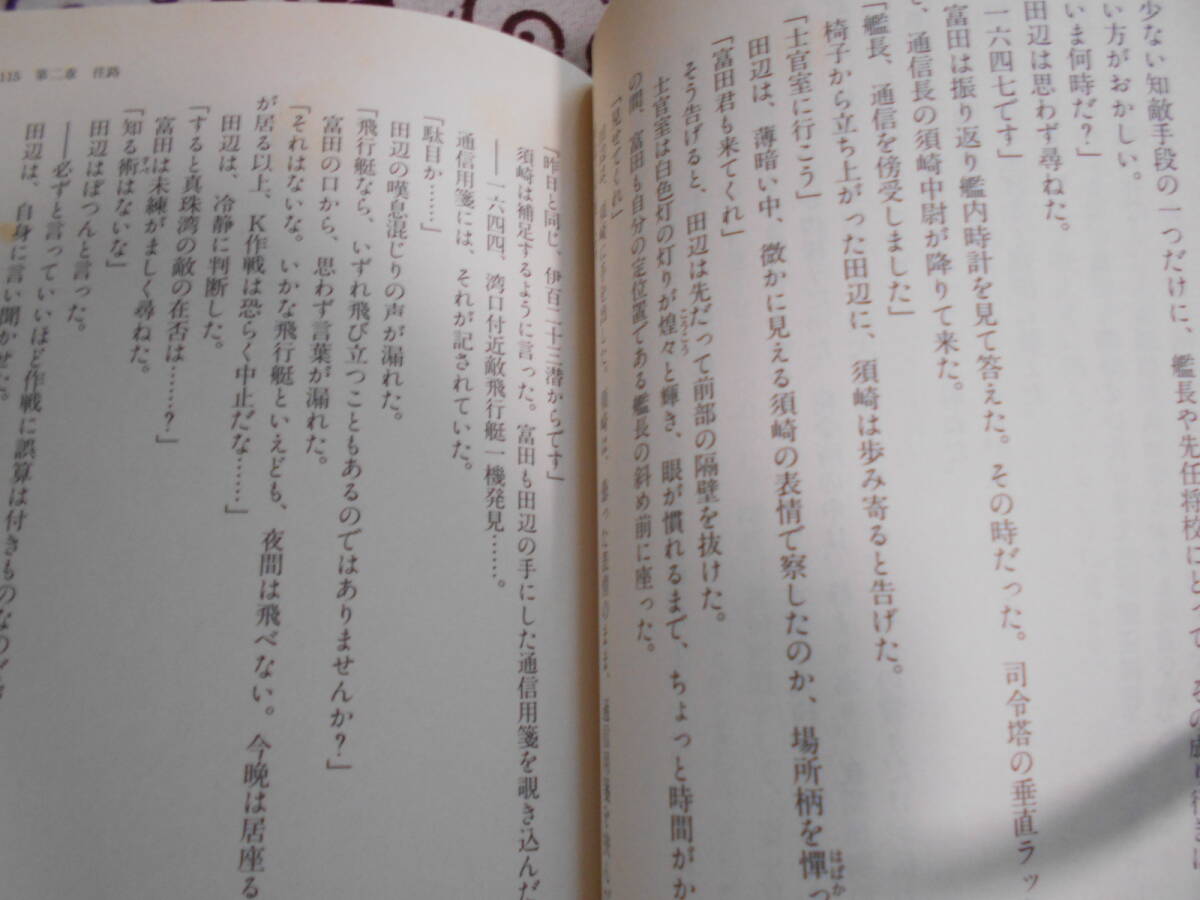 少ない知敵手段の一つだけに、艦長や先任将校にとって、
い方がおかしい。
いま何時だ?」
田辺は思わず尋ねた。
一六四七です」
富田は振り返り艦内時計を見て答えた。その時だった。司令塔の垂直ラッ
、通信長の須崎中尉が降りて来た。
「艦長、通信を傍受しました」
椅子から立ち上がった田辺に、須崎は歩み寄ると告げた。
「士官室に行こう」
田辺は、薄暗い中、微かに見える須崎の表情で察したのか、場所柄を憚っ
はばか
「富田君も来てくれ」
そう告げると、田辺は先だって前部の隔壁を抜けた。
士官室は白色灯の灯りが煌々と輝き、眼が慣れるまで、ちょっと時間がか
こうこう
の間、富田も自分の定位置である艦長の斜め前に座った。
「見せてくれ」
115 第二章 往路
「昨日と同じ、伊百二十三潜からです」
須崎は補足するように言った。富田も田辺の手にした通信用箋を覗き込んだ
——一六四四、湾口付近敵飛行艇一機発見……。
通信用箋には、それが記されていた。
「駄目か……」
田辺の嘆息混じりの声が漏れた。
「飛行艇なら、いずれ飛び立つこともあるのではありませんか?」
富田の口から、思わず言葉が漏れた。
「それはないな。いかな飛行艇といえども、夜間は飛べない。今晩は居座る
が居る以上、K作戦は恐らく中止だな……」
田辺は、冷静に判断した。
「すると真珠湾の敵の在否は……?」
富田は未練がましく尋ねた。
「知る術はないな」
すべ
田辺はぽつんと言った。
——必ずと言っていいほど作戦に誤算は付きものなのだ
田辺は、自身に言い聞かせた。